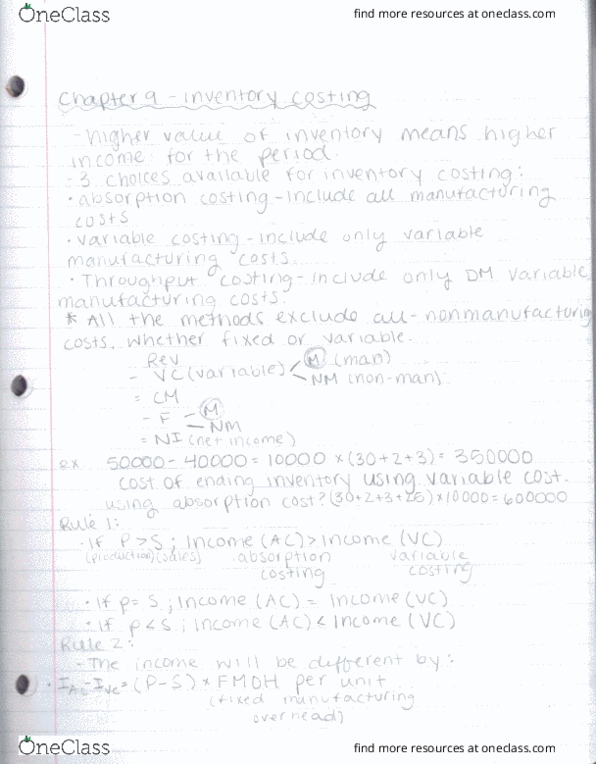 OneClass
find more resources at oneclass.com
Chapter 9 - inventory costing
- higher value of inventory means higher
income for the period.
- 3 choices available for inventory costing:
• absorption costing - include all manufacturing
costs
• variable costing - include only variable
manufacturing costs.
• Throughput costing - include only DM variable
manufacturing costs.
* All the methods exclude all - nonmanufacturing
costs, whether fixed or variable.
Rev
- VC (variable) < M (man)
NM (non-man)
= CM
- F - M
- NM
= NI (net income)
ex 50000 - 40000 = 10000 × (30+2+3) = 350000
cost of ending inventory using variable cost.
using absorption cost? (30+2+3+25) × 10000 = 600000
Rule 1:
• If P > S ; Income (AC) > Income (VC)
(production) (sales) absorption variable
costing costing
• If p = S ; Income (AC) = Income (VC)
• If p < S ; Income (AC) < Income (VC)
Rule 2:
- The income will be different by:
• I AC - I VC = (P - S) × FMOH per unit
(fixed manufacturing
overhead)
OneClass
find more resources at oneclass.com